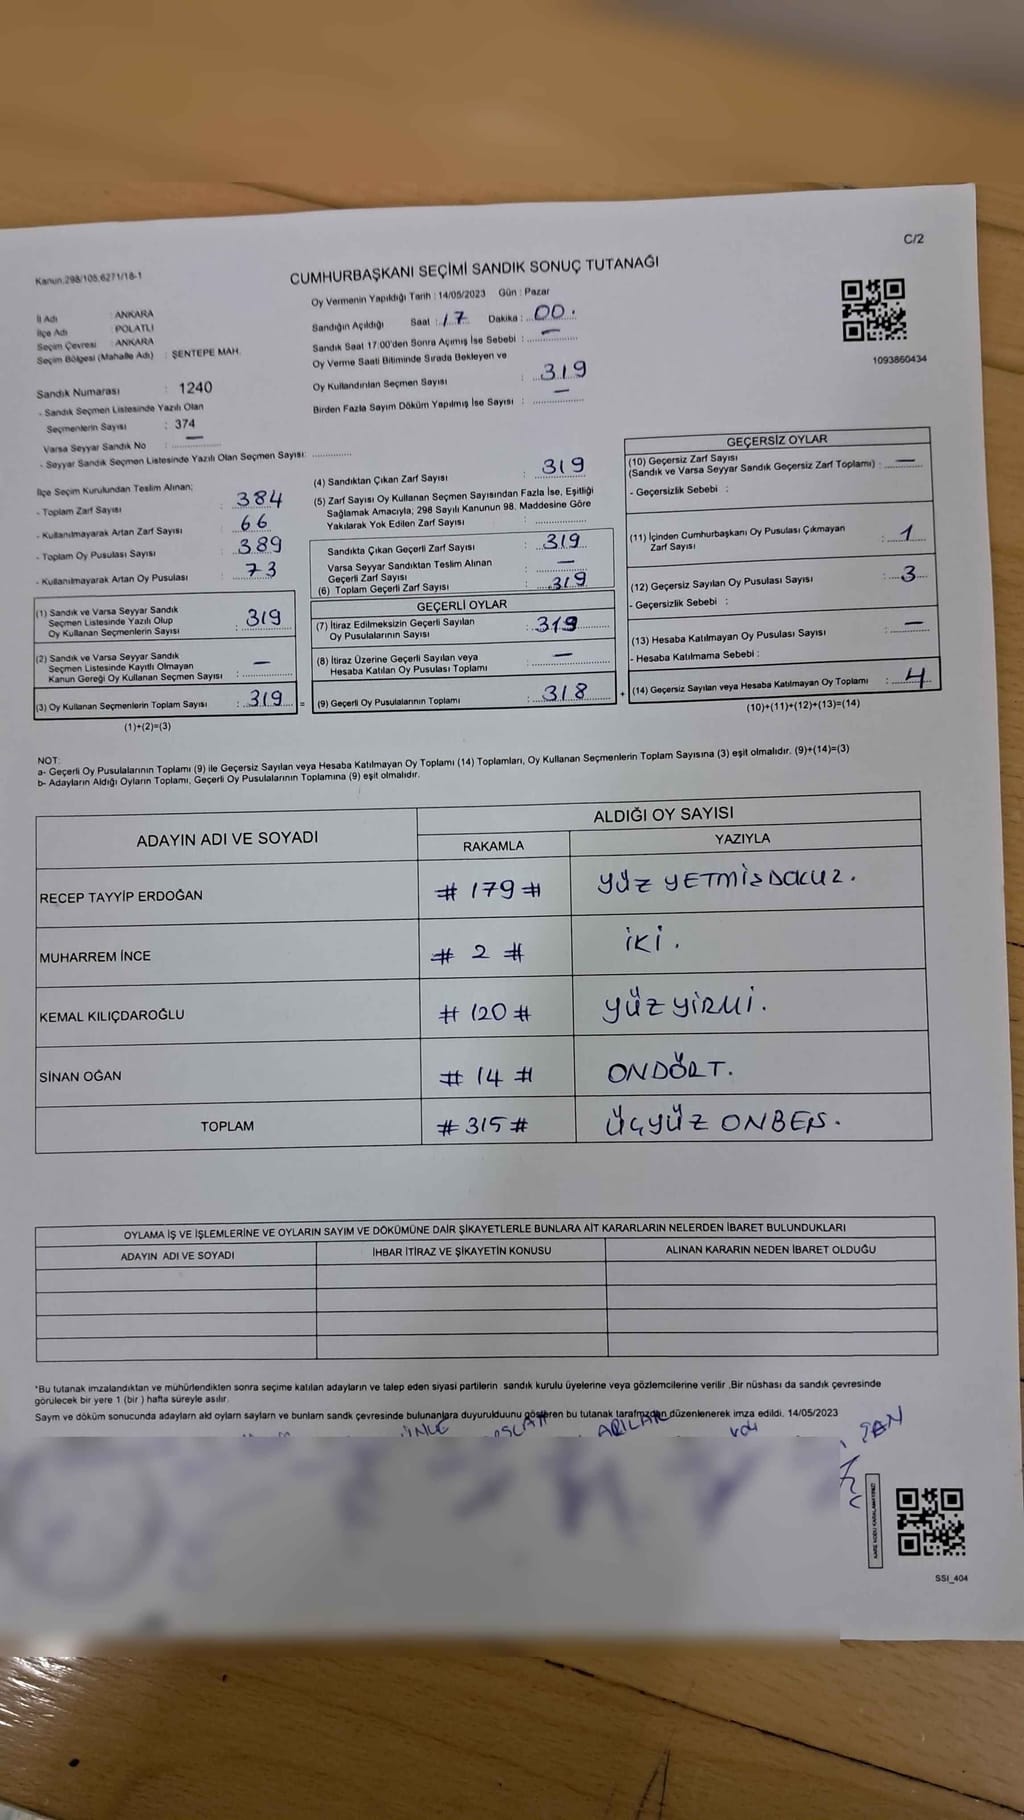 C/2
Kanun:298/105;6271/18-1
CUMHURBAŞKANI SEÇİMİ SANDIK SONUÇ TUTANAĞI
Oy Vermenin Yapıldığı Tarih : 14/05/2023 Gün : Pazar
İl Adı : ANKARA
İlçe Adı : POLATLI
Seçim Çevresi : ANKARA
Seçim Bölgesi (Mahalle Adı) : ŞENTEPE MAH.
Sandık Numarası : 1240
- Sandık Seçmen Listesinde Yazılı Olan
Seçmenlerin Sayısı : 374
Varsa Seyyar Sandık No : —
- Seyyar Sandık Seçmen Listesinde Yazılı Olan Seçmen Sayısı:
Sandığın Açıldığı Saat : 17 Dakika : 00.
Sandık Saat 17:00'den Sonra Açımış İse Sebebi : —
Oy Verme Saati Bitiminde Sırada Bekleyen ve
Oy Kullandırılan Seçmen Sayısı : 319
Birden Fazla Sayım Döküm Yapılmış İse Sayısı : —
1093860434
İlçe Seçim Kurulundan Teslim Alınan:
- Toplam Zarf Sayısı : 384
- Kullanılmayarak Artan Zarf Sayısı : 66
- Toplam Oy Pusulası Sayısı : 389
- Kullanılmayarak Artan Oy Pusulası : 73
(1) Sandık ve Varsa Seyyar Sandık
Seçmen Listesinde Yazılı Olup
Oy Kullanan Seçmenlerin Sayısı : 319
(2) Sandık ve Varsa Seyyar Sandık
Seçmen Listesinde Kayıtlı Olmayan
Kanun Gereği Oy Kullanan Seçmen Sayısı : —
(3) Oy Kullanan Seçmenlerin Toplam Sayısı : 319 =
(1)+(2)=(3)
(4) Sandıktan Çıkan Zarf Sayısı : 319
(5) Zarf Sayısı Oy Kullanan Seçmen Sayısından Fazla İse, Eşitliği
Sağlamak Amacıyla; 298 Sayılı Kanunun 98. Maddesine Göre
Yakılarak Yok Edilen Zarf Sayısı :
Sandıkta Çıkan Geçerli Zarf Sayısı : 319
Varsa Seyyar Sandıktan Teslim Alınan
Geçerli Zarf Sayısı : —
(6) Toplam Geçerli Zarf Sayısı : 319
GEÇERLİ OYLAR
(7) İtiraz Edilmeksizin Geçerli Sayılan
Oy Pusulalarının Sayısı : 319
(8) İtiraz Üzerine Geçerli Sayılan veya
Hesaba Katılan Oy Pusulası Toplamı : —
(9) Geçerli Oy Pusulalarının Toplamı : 318 +
GEÇERSİZ OYLAR
(10) Geçersiz Zarf Sayısı
(Sandık ve Varsa Seyyar Sandık Geçersiz Zarf Toplamı) : —
- Geçersizlik Sebebi :
(11) İçinden Cumhurbaşkanı Oy Pusulası Çıkmayan
Zarf Sayısı : 1
(12) Geçersiz Sayılan Oy Pusulası Sayısı : 3
- Geçersizlik Sebebi :
(13) Hesaba Katılmayan Oy Pusulası Sayısı : —
- Hesaba Katılmama Sebebi :
(14) Geçersiz Sayılan veya Hesaba Katılmayan Oy Toplamı : 4
(10)+(11)+(12)+(13)=(14)
NOT:
a- Geçerli Oy Pusulalarının Toplamı (9) ile Geçersiz Sayılan veya Hesaba Katılmayan Oy Toplamı (14) Toplamları, Oy Kullanan Seçmenlerin Toplam Sayısına (3) eşit olmalıdır. (9)+(14)=(3)
b- Adayların Aldığı Oyların Toplamı, Geçerli Oy Pusulalarının Toplamına (9) eşit olmalıdır.
ADAYIN ADI VE SOYADI ALDIĞI OY SAYISI
RAKAMLA YAZIYLA
RECEP TAYYİP ERDOĞAN # 179 # YÜZ YETMİŞDOKUZ.
MUHARREM İNCE # 2 # İKİ.
KEMAL KILIÇDAROĞLU # 120 # YÜZ YİRMİ.
SİNAN OĞAN # 14 # ONDÖRT.
TOPLAM # 315 # ÜÇYÜZ ONBEŞ.
OYLAMA İŞ VE İŞLEMLERİNE VE OYLARIN SAYIM VE DÖKÜMÜNE DAİR ŞİKAYETLERLE BUNLARA AİT KARARLARIN NELERDEN İBARET BULUNDUKLARI
ADAYIN ADI VE SOYADI İHBAR İTİRAZ VE ŞİKAYETİN KONUSU ALINAN KARARIN NEDEN İBARET OLDUĞU
*Bu tutanak imzalandıktan ve mühürlendikten sonra seçime katılan adayların ve talep eden siyasi partilerin sandık kurulu üyelerine veya gözlemcilerine verilir .Bir nüshası da sandık çevresinde
görülecek bir yere 1 (bir ) hafta süreyle asılır.
Sayım ve döküm sonucunda adayların ald oyların sayların ve bunların sandk çevresinde bulunanlara duyurulduunu gösteren bu tutanak tarafmzdan düzenlenerek imza edildi. 14/05/2023
SSI_404